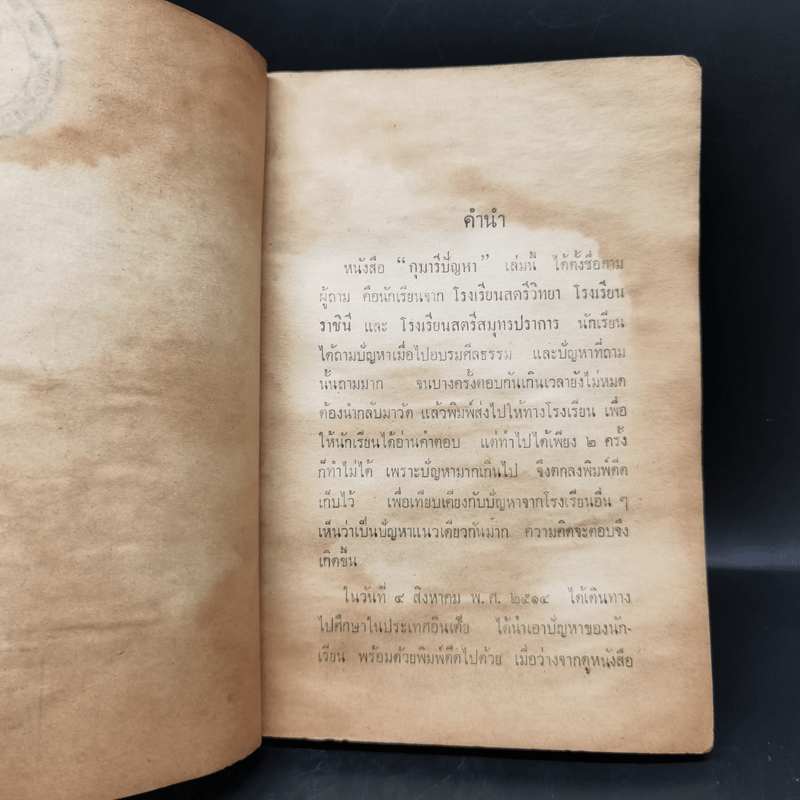 คำนำ
หนังสือ “กุมารีปัญหา” เล่มนี้ ได้ตั้งชื่อตาม
ผู้ถาม คือนักเรียนจาก โรงเรียนสตรีวิทยา โรงเรียน
ราชินี และ โรงเรียนสตรีสมุทรปราการ นักเรียน
ได้ถามปัญหาเมื่อไปอบรมศีลธรรม และปัญหาที่ถาม
นั้นถามมาก จนบางครั้งตอบกันเกินเวลายังไม่หมด
ต้องนำกลับมาวัด แล้วพิมพ์ส่งไปให้ทางโรงเรียน เพื่อ
ให้นักเรียนได้อ่านคำตอบ แต่ทำไปได้เพียง ๒ ครั้ง
ก็ทำไม่ได้ เพราะปัญหามากเกินไป จึงตกลงพิมพ์ดีด
เก็บไว้ เพื่อเทียบเคียงกับปัญหาจากโรงเรียนอื่น ๆ
เห็นว่าเป็นปัญหาแนวเดียวกันมาก ความคิดจะตอบจึง
เกิดขึ้น
ในวันที่ ๔ สิงหาคม พ.ศ. ๒๕๑๔ ได้เดินทาง
ไปศึกษาในประเทศอินเดีย ได้นำเอาปัญหาของนัก-
เรียน พร้อมด้วยพิมพ์ดีดไปด้วย เมื่อว่างจากดูหนังสือ